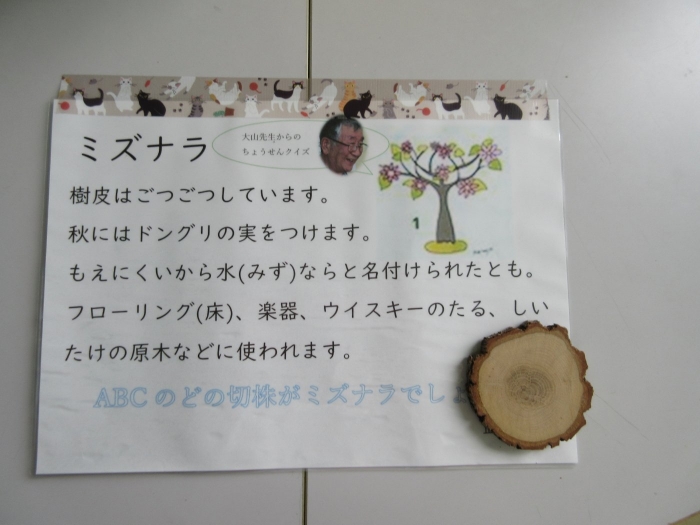 ミズナラ
大山先生からの
ちょうせんクイズ
1
樹皮はごつごつしています。
秋にはドングリの実をつけます。
もえにくいから水(みず)ならと名付けられたとも。
フローリング(床)、楽器、ウイスキーのたる、しい
たけの原木などに使われます。
ABCのどの切株がミズナラでしょ